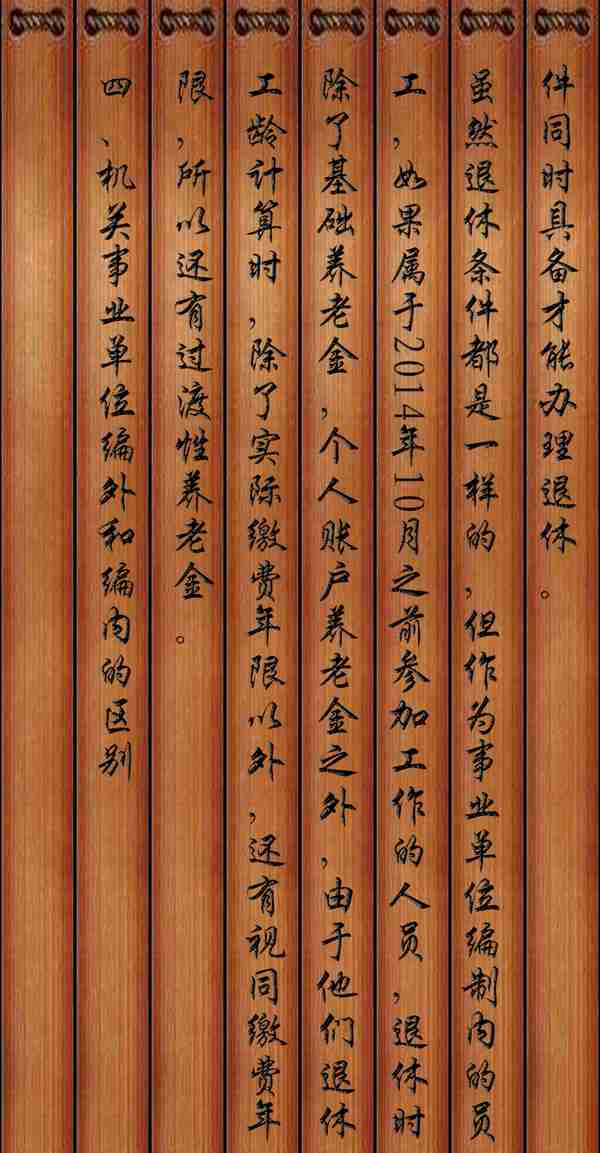 件同时具备才能办理退休。
虽然退休条件都是一样的,但作为事业单位编制内的员
工,如果属于2014年10月之前参加工作的人员,退休时
除了基础养老金,个人账户养老金之外,由于他们退休
工龄计算时,除了实际缴费年限以外,还有视同缴费年
限,所以还有过渡性养老金。
四、机关事业单位编外和编内的区别